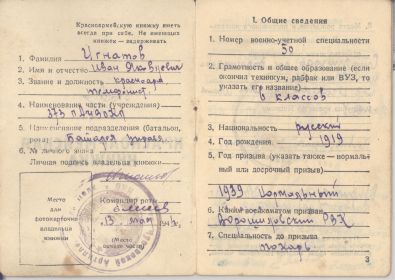 Красноармейскую книжку иметь
всегда при себе. Не имеющих
книжек — задерживать
1. Фамилия Игнатов
2. Имя и отчество Иван Яковлевич
3. Звание и должность красноарм
телефонист
4. Наименование части (учреждения)
5. Наименование подразделения (батальон,
рота) Батарея управ.
6. № личного знака
Личная подпись владельца книжки
Место
для
фотокарточки
владельца
книжки
Командир роты
13 мая
(Место
печати части)
I. Общие сведения
1. Номер военно-учетной специальности
50
2. Грамотность и общее образование (если
окончил техникум, рабфак или ВУЗ, то
указать его название)
6 классов
3. Национальность русский
4. Год рождения 1919
5. Год призыва (указать также — нормаль-
ный или досрочный призыв)
1939 Нормальный
6. Каким военкоматом призван
Ворошиловский РВК
7. Специальность до призыва
токарь
3